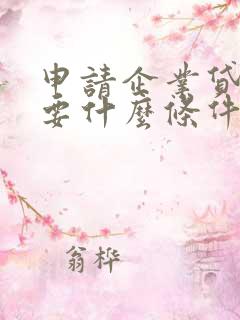 申請企業貸
要什麼條件
翁桦